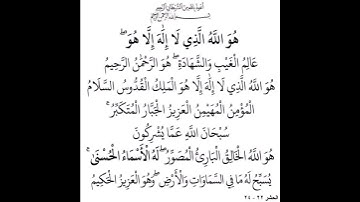 هُوَ اللَّهُ الَّذِي لَا إِلَٰهَ إِلَّا هُوَ ۖ
عَالِمُ الْغَيْبِ وَالشَّهَادَةِ ۖ هُوَ الرَّحْمَٰنُ الرَّحِيمُ
هُوَ اللَّهُ الَّذِي لَا إِلَٰهَ إِلَّا هُوَ الْمَلِكُ الْقُدُّوسُ السَّلَامُ
الْمُؤْمِنُ الْمُهَيْمِنُ الْعَزِيزُ الْجَبَّارُ الْمُتَكَبِّرُ ۚ
سُبْحَانَ اللَّهِ عَمَّا يُشْرِكُونَ
هُوَ اللَّهُ الْخَالِقُ الْبَارِئُ الْمُصَوِّرُ ۖ لَهُ الْأَسْمَاءُ الْحُسْنَىٰ ۚ
يُسَبِّحُ لَهُ مَا فِي السَّمَاوَاتِ وَالْأَرْضِ ۖ وَهُوَ الْعَزِيزُ الْحَكِيمُ
الحشر ٢٢ - ٢٤